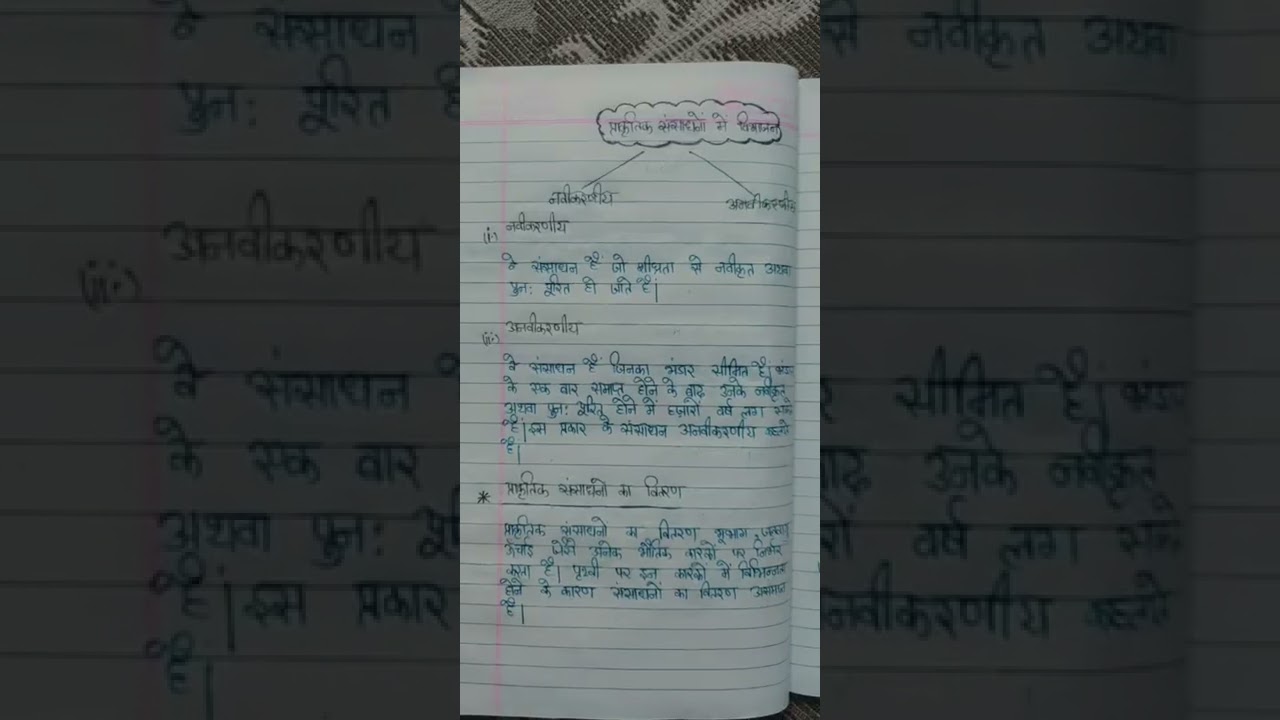 प्राकृतिक संसाधनों में विभाजन
नवीकरणीय अनवीकरणीय
(i.) नवीकरणीय
वे संसाधन हैं जो शीघ्रता से नवीकृत अथवा
पुन: पूरित हो जाते है|
(ii.) अनवीकरणीय
वे संसाधन हैं जिनका भंडार सीमित है| भंडार
के एक बार समाप्त होने के बाद उनके नवीकृत
अथवा पुन: पूरित होने में हजारों वर्ष लग सकते
हैं| इस प्रकार के संसाधन अनवीकरणीय कहलाते
है|
* प्राकृतिक संसाधनों का वितरण
प्राकृतिक संसाधनों का वितरण भूभाग, जलवायु
ऊंचाई जैसे अनेक भौतिक कारकों पर निर्भर
करता है| पृथ्वी पर इन कारकों में विभिन्नता
होने के कारण संसाधनों का वितरण असमान
है|